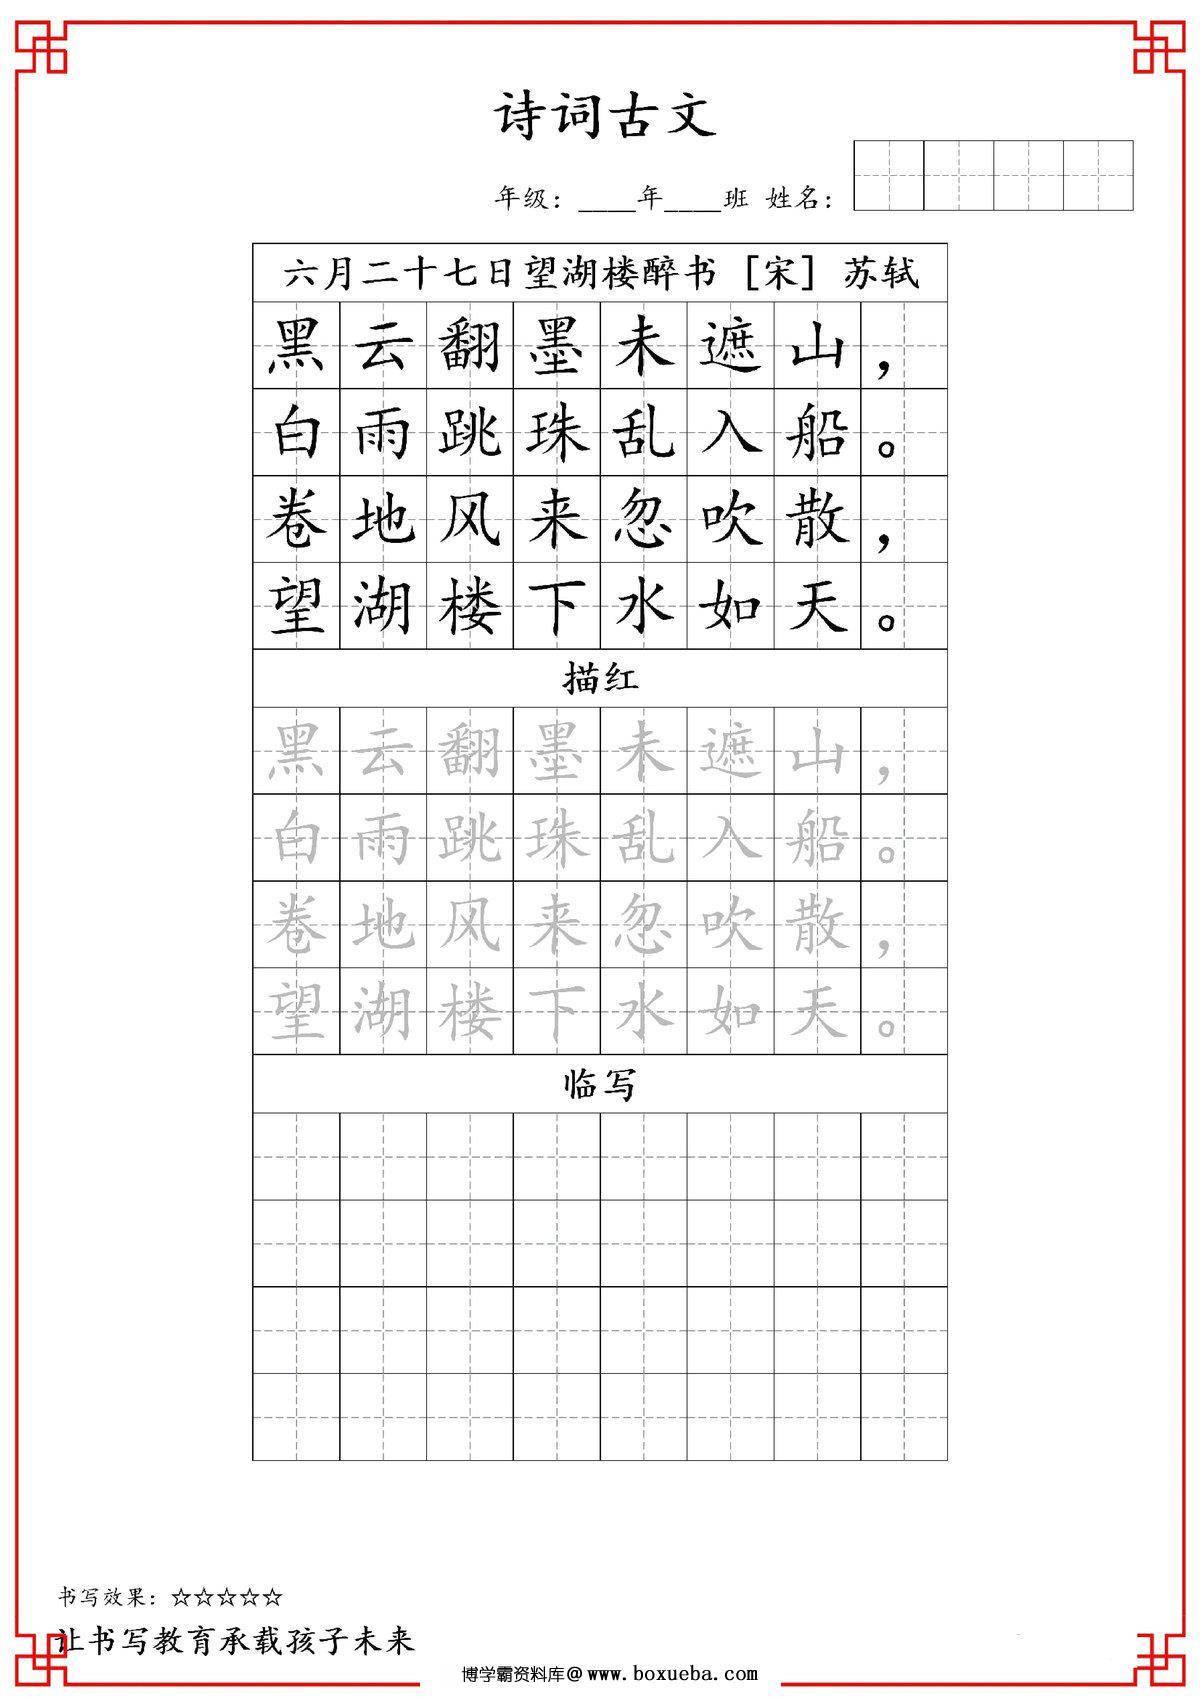 诗词古文
年级：____年____班 姓名：
六月二十七日望湖楼醉书 [宋] 苏轼
黑云翻墨未遮山，
白雨跳珠乱入船。
卷地风来忽吹散，
望湖楼下水如天。
描红
黑云翻墨未遮山，
白雨跳珠乱入船。
卷地风来忽吹散，
望湖楼下水如天。
临写
书写效果：☆☆☆☆☆
让书写教育承载孩子未来
博学霸资料库@www.boxueba.com